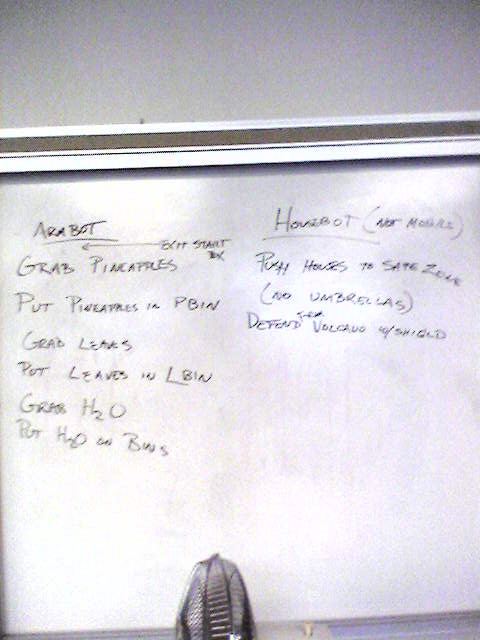 ARMBOT
EXIT START BOX
GRAB PINEAPPLES
PUT PINEAPPLES IN PBIN
GRAB LEAVES
PUT LEAVES IN LBIN
GRAB H2O
PUT H2O ON BINS
HOUSEBOT (NOT MOBILE)
PUSH HOUSES TO SAFE ZONE
(NO UMBRELLAS)
DEFEND FROM VOLCANO W/SHIELD